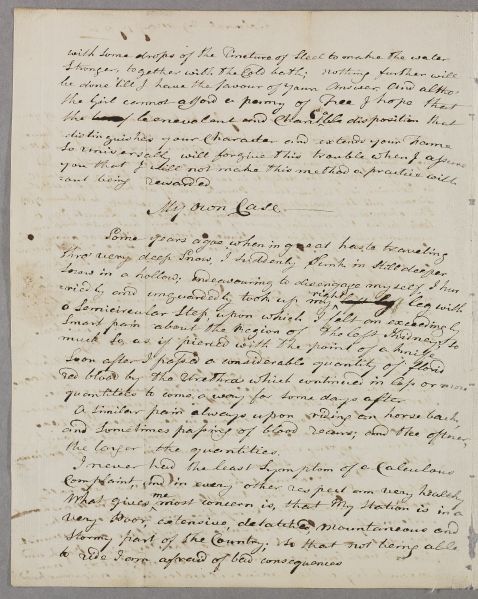 with some drops of the Tincture of Steel to make the water
stronger, together with the Cold bath; nothing further will
be done till I have the favour of your Answer, and altho
the Girl cannot afford a penny of Fee I hope that
the benevolent and Charitble disposition that
distinguishes your Character and extends your Fame
so universally will forgive this trouble when I assure
you that I shall not make this method a practice with
out being rewarded
My own Case
Some years agoe when in great haste traveling
thro' very deep Snow, I suddenly sunk in still deeper
Snow in a hollow; endeavouring to disengage myself I hur
riedly and unguardedly took up my right leg with
a Semicircular Step upon which I felt an exceedingly
smart pain about the Region of the left Kidney, so
much so, as if pierced with the point of a knife
soon after I passed a considerable quantity of florid
red blood by the Urethra which continued in less or more
quantities to come away for some days after
A similar pain always upon riding on horse back,
and sometimes passing of blood recurs, and the oftener,
the larger the quantities.
I never had the least Symptom of a Calculous
Complaint, and in every other respect am very healthy
What gives me most concern is, that My Station is in a
very poor, extensive, mountaneous and
Stormy part of the Country, so that not being able
to ride I am afraid of bad consequences